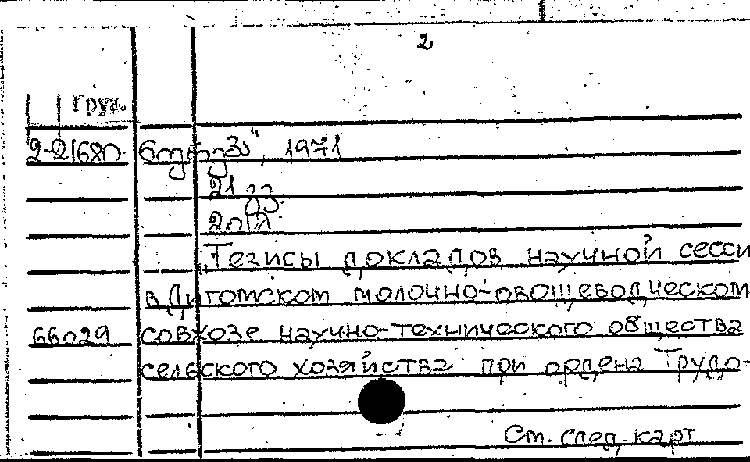 2
Груз.
2-21680
", 1971
21 გვ.
20
Тезисы докладов научной сесси
в Дигомском молочно-овощеводческом
66029 совхозе научно-технического общества
сельского хозяйства при ордена Трудо-
См. след. карт